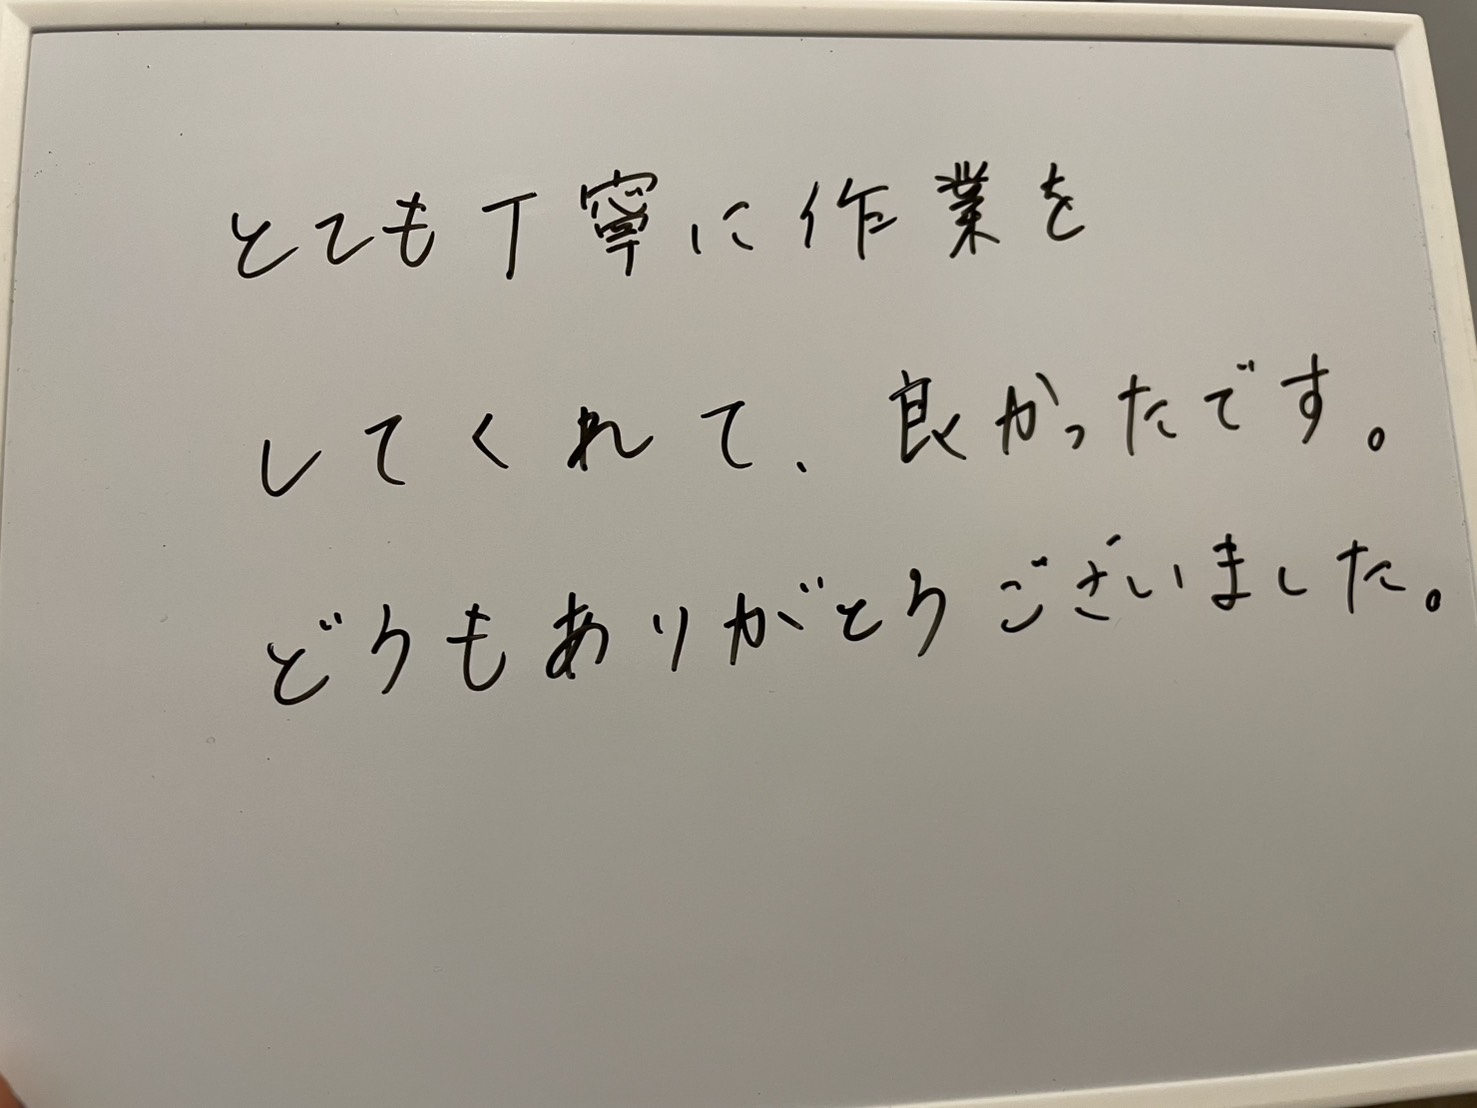 とても丁寧に作業を
してくれて、良かったです。
どうもありがとうございました。